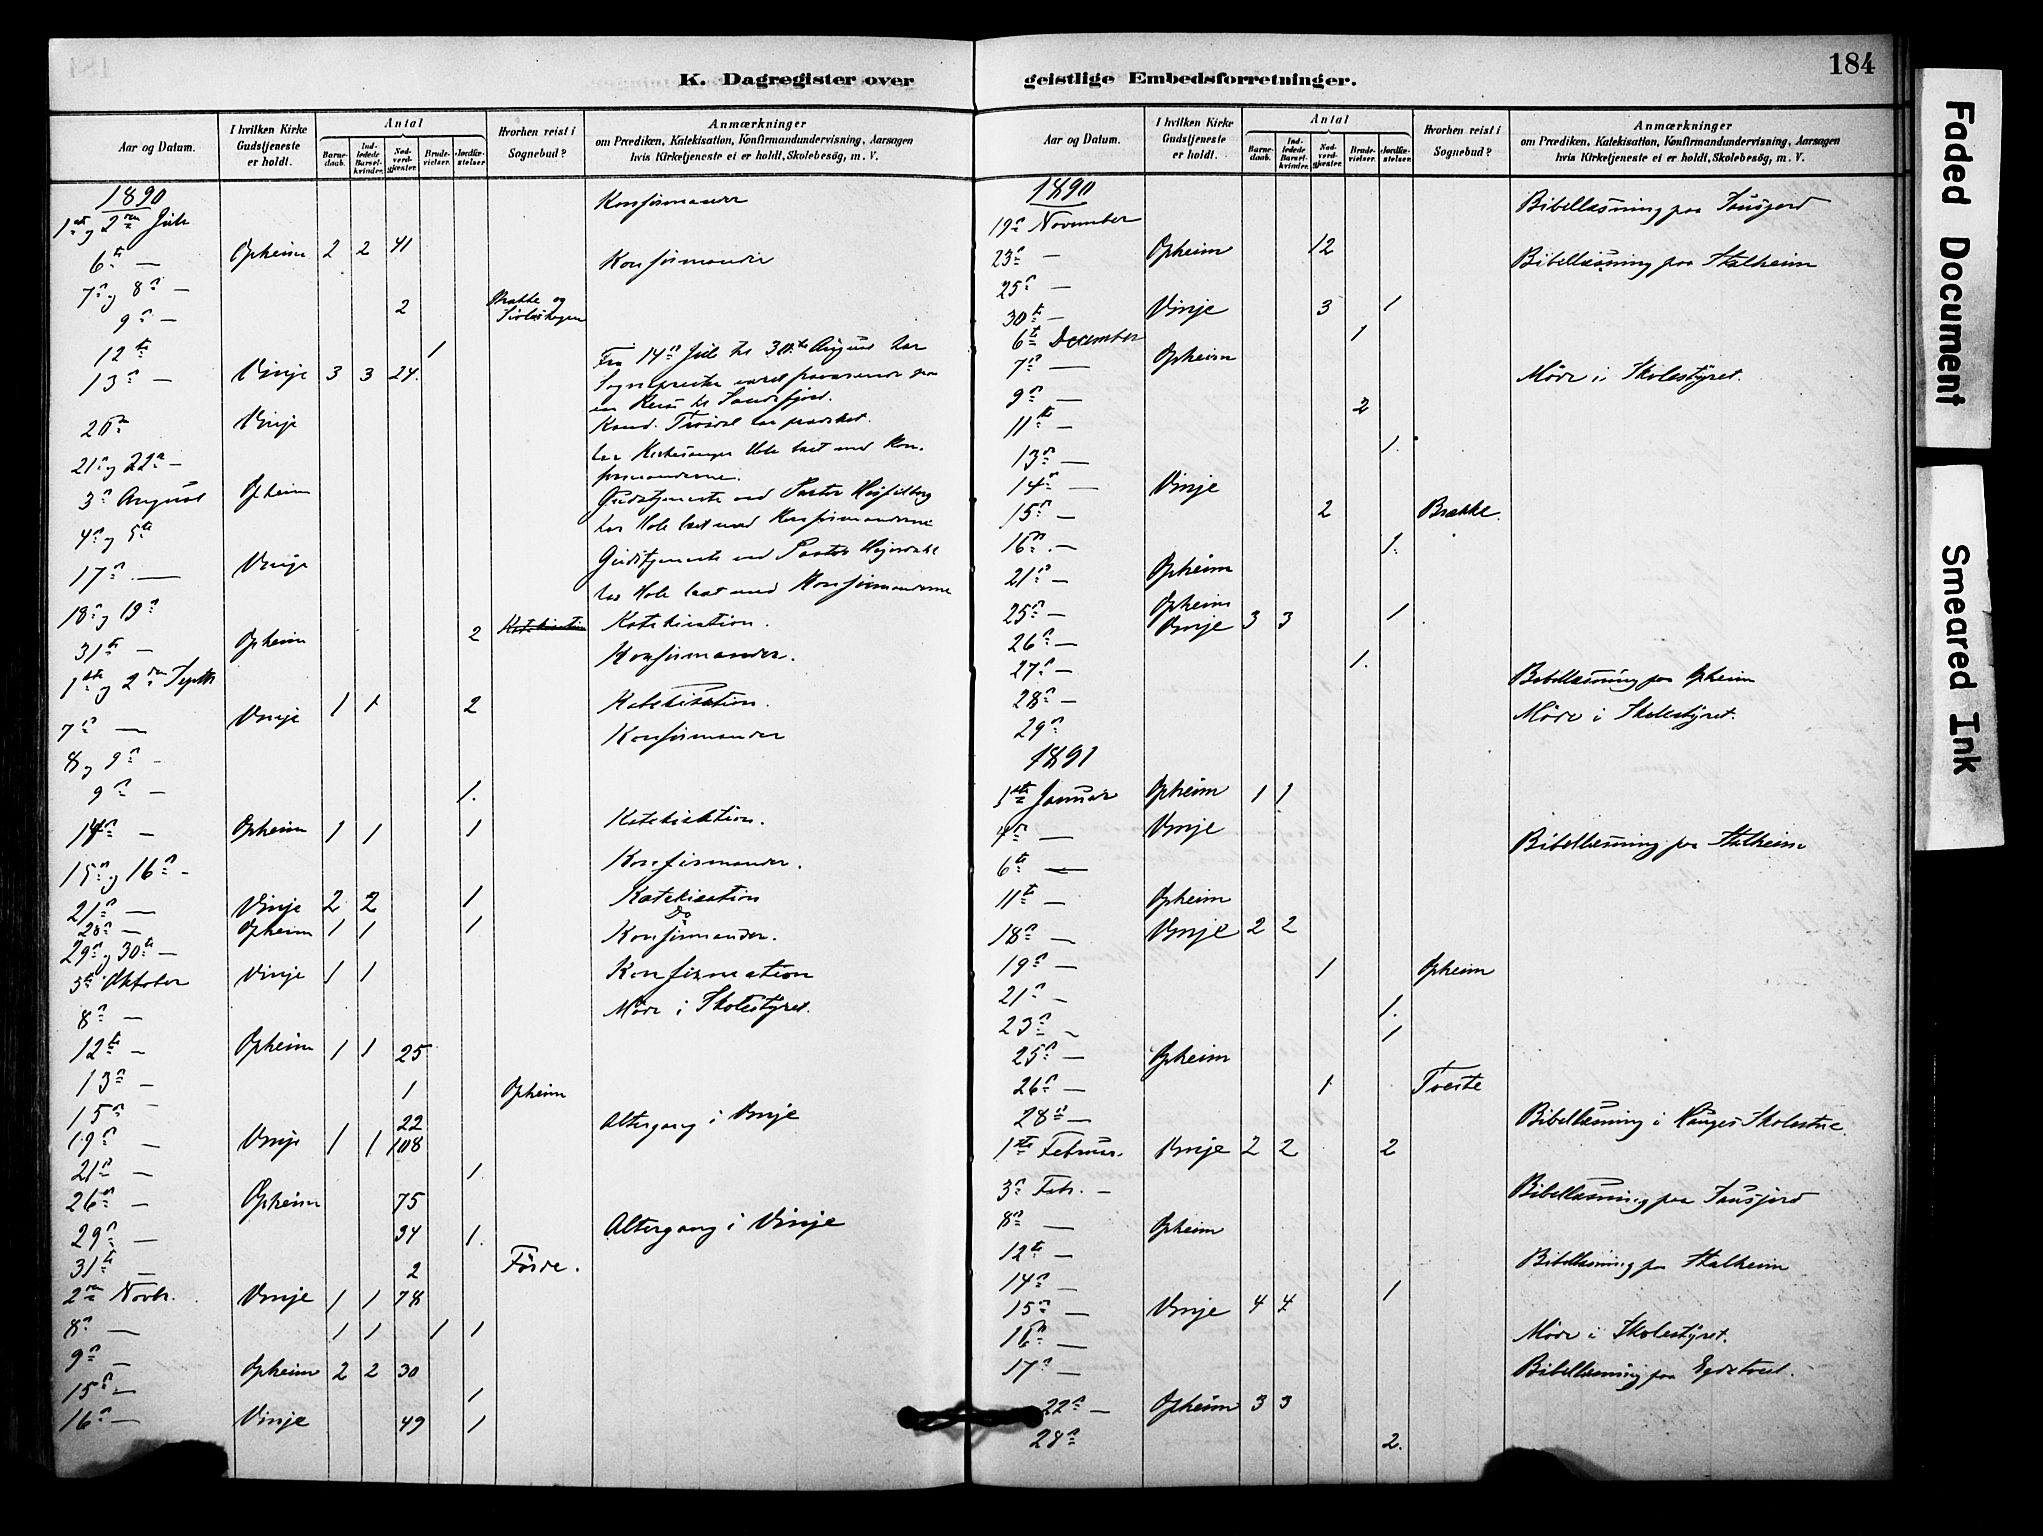 K. Dagregister over
Aar og Datum.
I hvilken Kirke Gudstjeneste er holdt.
Antal
Barnedaab.
Indledede Barselkvinder.
Nadverdgjester.
Brudevielser.
Jordfæstelser.
Hvorhen reist i Sognebud?
Anmærkninger
om Prædiken, Katekisation, Konfirmandundervisning, Aarsagen
hvis Kirketjeneste ei er holdt, Skolebesög, m. V.
1890
1ste og 2den Juli Konfirmander
6te — Opheim 2 2 41
7de og 8de — Konfirmander
9de — 2 Brække og
12te 1
13de — Vinje 3 3 24. Fra 14de Juli til 30te August har
Sognepresten været fraværende paa
en Reise til Sandefjord.
20de Vinje Kand. har prædiket.
21de og 22de — har Kirkesanger Hole læst med Kon-
firmanderne.
3de August Opheim Gudstjeneste ved Pastor
4de og 5te har Hole læst med Konfirmanderne
17de — Vinje Gudstjeneste ved Pastor
18de og 19de har Hole læst med Konfirmanderne
31te — Opheim 2 Katekisation Katekisation.
1ste og 2den Septbr Konfirmander.
7de — Vinje 1 1 2 Katekisation.
8de og 9de — Konfirmander
9de — 1.
14de — Opheim 1 1 1 Katekisation.
15de og 16de — Konfirmander.
21de — Vinje 2 2 1 Katekisation
28de — Opheim 1 1 1 Do
29de og 30te — Konfirmander.
5te Oktober Vinje 1 1 Konfirmation
8de — Möde i Skolestyret.
12te — Opheim 1 1 25
13de — 1 Opheim
15de 22 Altergang i Vinje
19de — Vinje 1 1 108
21de — 1.
26de — Opheim 75
29de — 34 1. Altergang i Vinje
31te — 2 Förde.
2den Novbr. Vinje 1 1 78
8de — 1 1 1 1
9de — Opheim 2 2 30
15de — 1
16de — Vinje 49 1
geistlige Embedsforretninger.
184
Aar og Datum.
I hvilken Kirke Gudstjeneste er holdt.
Antal
Barnedaab.
Indledede Barselkvinder.
Nadverdgjester.
Brudevielser.
Jordfæstelser.
Hvorhen reist i Sognebud?
Anmærkninger
om Prædiken, Katekisation, Konfirmandundervisning, Aarsagen
hvis Kirketjeneste ei er holdt, Skolebesög, m. V.
1890
19de November Bibellæsning paa
23de — Opheim 12
25de — Bibellæsning paa Stalheim
30te — Vinje 3 1
6te December 1
7de — Opheim
9de — Möde i Skolestyret.
11te — 2
13de — 1.
14de — Vinje
15de — 2 Brække.
16de — 1.
21de — Opheim
25de — Opheim 1
26de — Vinje 3 3
27de — 1.
28de — Bibellæsning paa Opheim
29de Möde i Skolestyret.
1891
1ste Januar Opheim 1 1
4de — Vinje
6te — Bibellæsning paa Stalheim
11te — Opheim
18de — Vinje 2 2
19de — 1 Opheim
21de — 1.
23de — 1
25de — Opheim
26de — 1 Tveite
28de — Bibellæsning i Hauges Skolestue.
1ste Februar. Vinje 2 2 2
3de Febr. — Bibellæsning paa
8de — Opheim
12te — Bibellæsning paa Stalheim
14de — 1
15de — Vinje 4 4
16de — Möde i Skolestyret.
17de — Bibellæsning paa
22de — Opheim 3 3
28de 2.
Faded Document
Smeared Ink